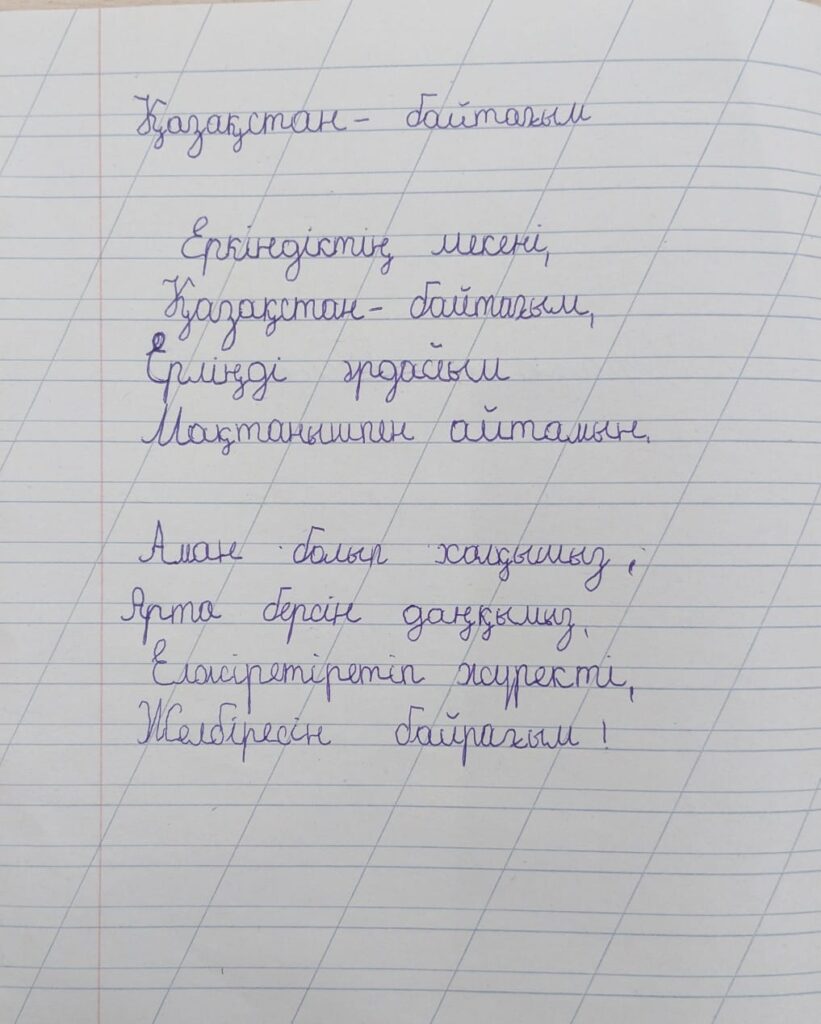 Қазақстан - байтағым
Еркіндіктің мекені,
Қазақстан - байтағым,
Ерліңді әрдайым
Мақтанышпен айтамын.
Аман болып халқымыз,
Арта берсін даңқымыз,
Елжіретіретіп жүректі,
Желбіресін байрағым!